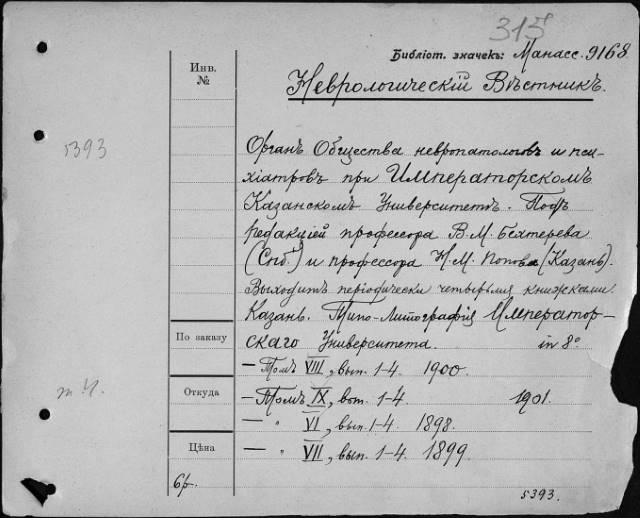 315
Библіот. значекъ: Манасс. 9168
Инв.
№
Неврологическій Вѣстникъ.
5393
Органъ Общества невропатологовъ и пси-
хіатровъ при Императорскомъ
Казанскомъ Университетѣ. Подъ
редакціей профессора В. М. Бехтерева
(Спб.) и профессора Н. М. Попова (Казань).
Выходитъ періодически четырьмя книжками.
Казань. Типо-Литографія Император-
По заказу
скаго Университета. in 8°
— Томъ VIII, вып. 1-4. 1900.
Откуда
— Томъ IX, вып. 1-4. 1901.
— " VI, вып. 1-4 1898.
Цѣна
— " VII, вып. 1-4. 1899
6р.
5393.